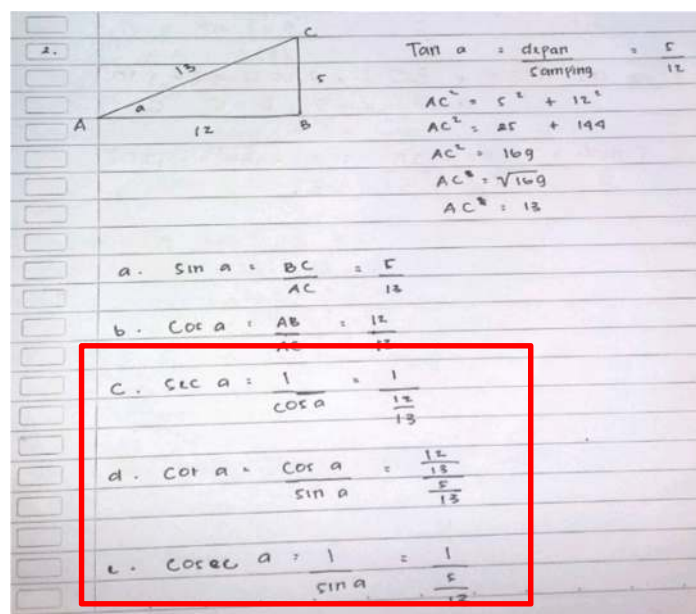 2.
C
13
5
a
A
12
B
Tan a = depan / samping = 5 / 12
AC² = 5² + 12²
AC² = 25 + 144
AC² = 169
AC = √169
AC = 13
a. Sin a = BC / AC = 5 / 13
b. Cos a = AB / AC = 12 / 13
c. Sec a = 1 / cos a = 1 / 12 / 13
d. Cot a = Cos a / sin a = 12 / 13 / 5 / 13
e. Cosec a = 1 / sin a = 1 / 5 / 13